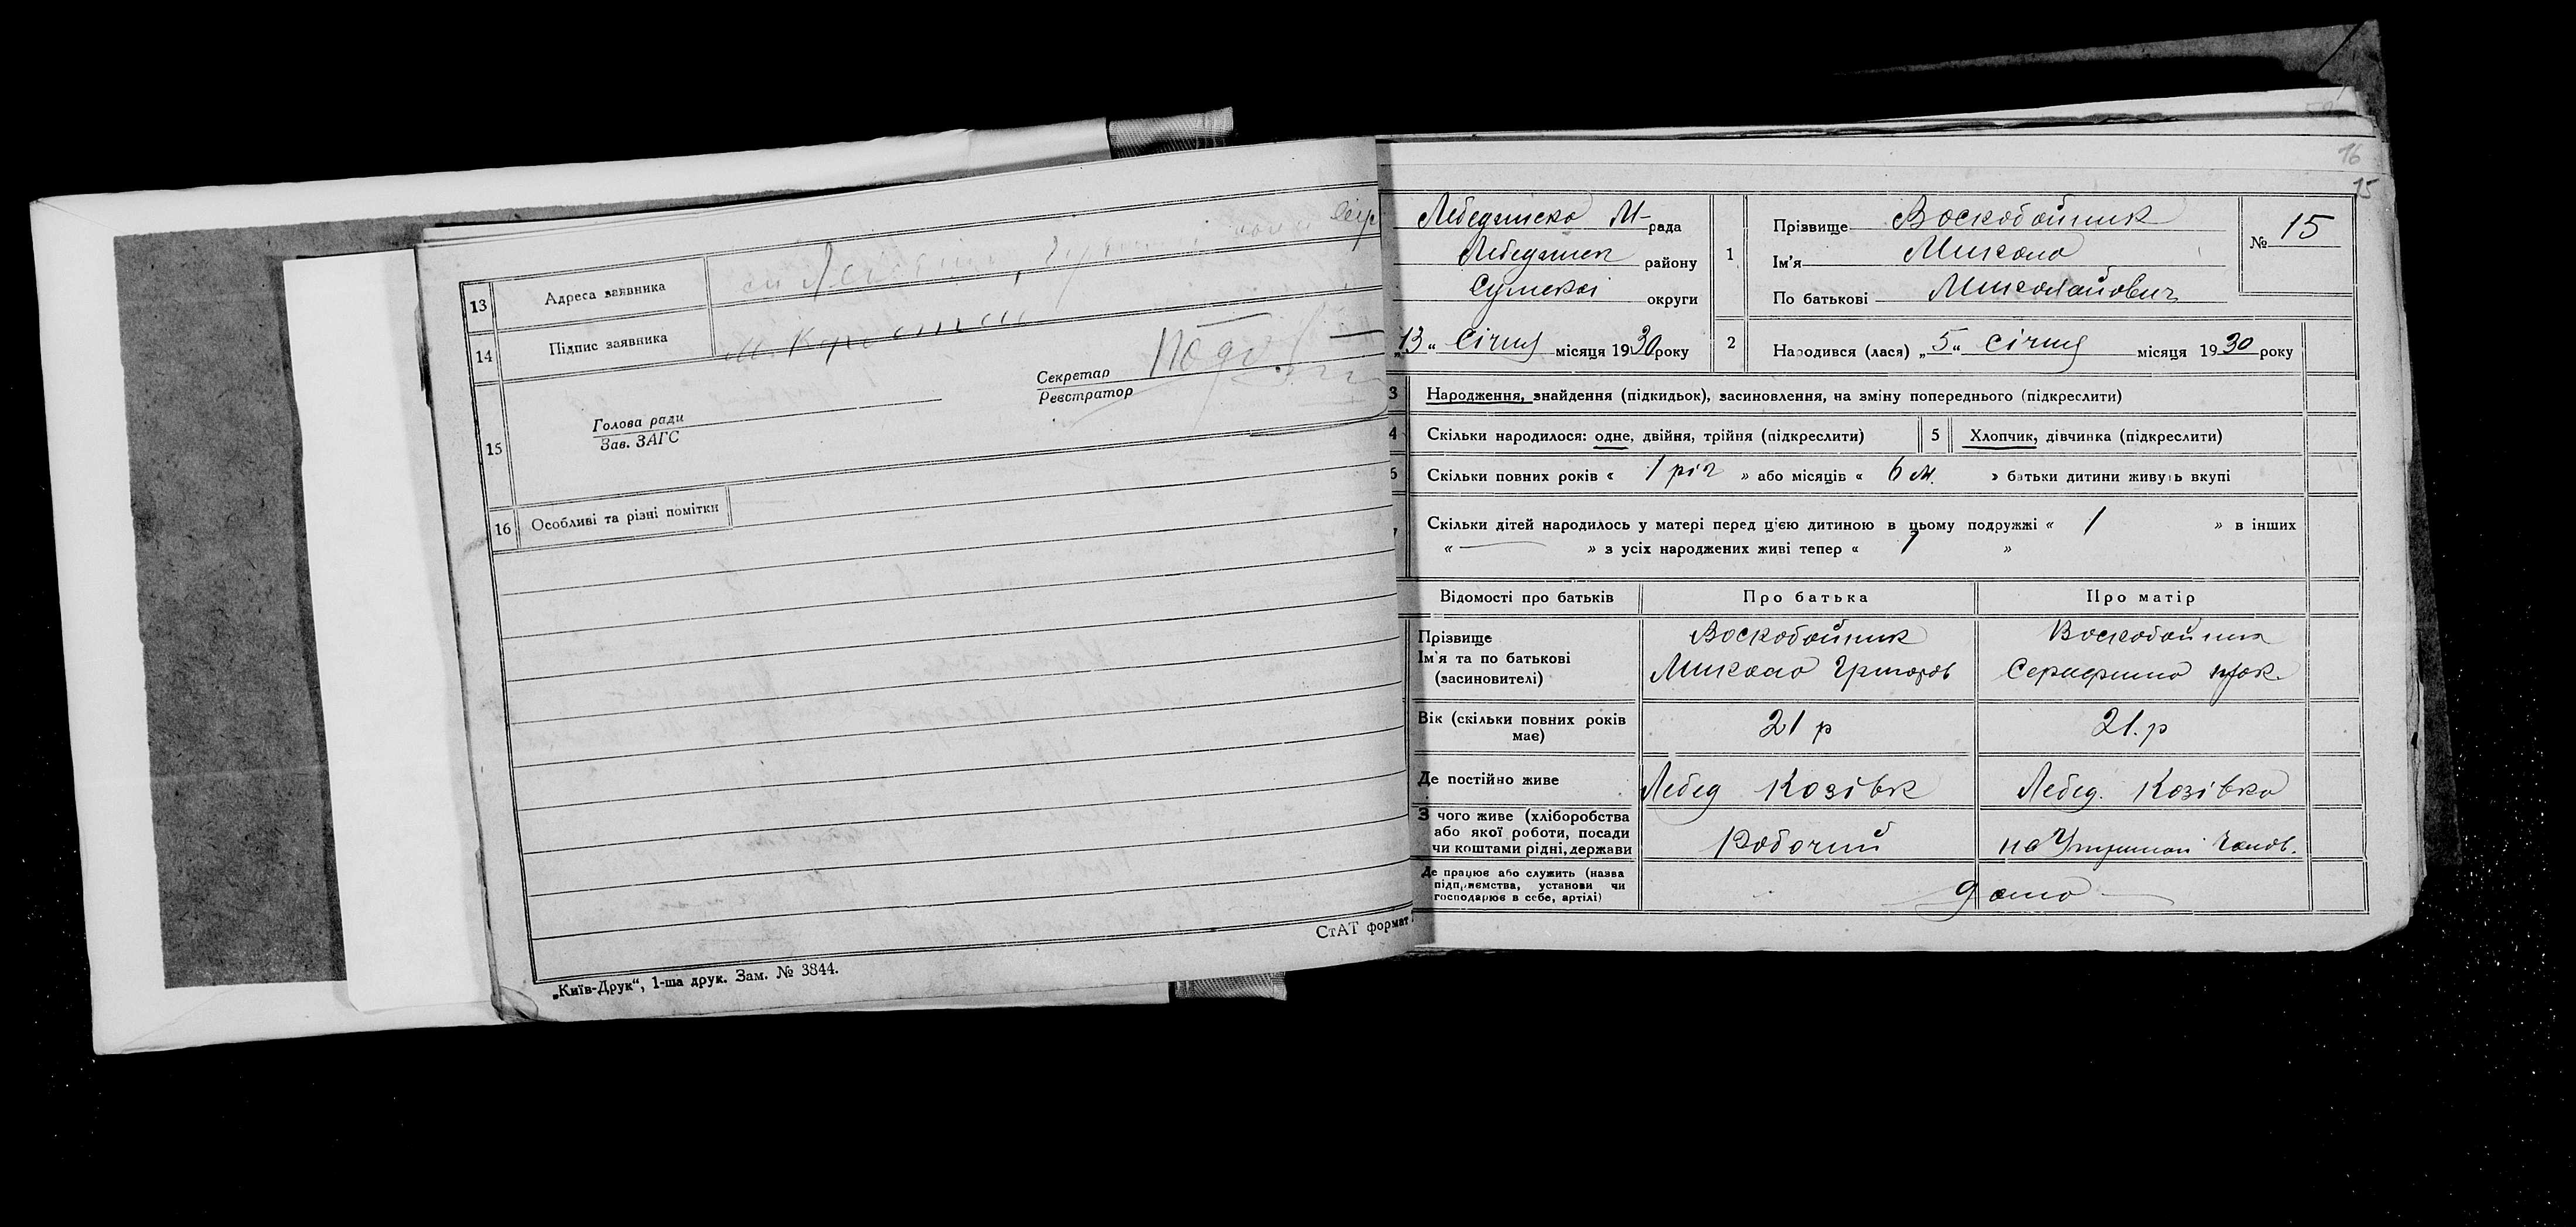 13 Адреса заявника
14 Підпис заявника
15 Голова ради
Зав. ЗАГС
Секретар
Реєстратор
16 Особливі та різні помітки
СтАТ формат
„Київ-Друк“, 1-ша друк. Зам. № 3844.
16
15
Лебединска М- рада
Лебединск району
Сумської округи
„13“ Січня місяця 1930 року
1 Прізвище Воскобойник
Ім'я Микола
По батькові Миколайович
№ 15
2 Народився (лася) „5“ Січня місяця 1930 року
3 Народження, знайдення (підкидьок), засиновлення, на зміну попереднього (підкреслити)
4 Скільки народилося: одне, двійня, трійня (підкреслити) 5 Хлопчик, дівчинка (підкреслити)
6 Скільки повних років « 1 річ » або місяців « 6 м. » батьки дитини живуть вкупі
Скільки дітей народилось у матері перед цією дитиною в цьому подружжі « 1 » в інших
« — » з усіх народжених живі тепер « 1 »
Відомості про батьків Про батька Про матір
Прізвище Воскобойник Воскобойник
Ім'я та по батькові Микола Григоров Серафима прок.
(засиновителі)
Вік (скільки повних років має) 21 р 21.р
Де постійно живе Лебед Козівк Лебед. Козівка
З чого живе (хліборобства
або якої роботи, посади Робочий на Утриман чолов.
чи коштами рідні, держави
Де працює або служить (назва
підприємства, установи чи
господарює в себе, артілі)